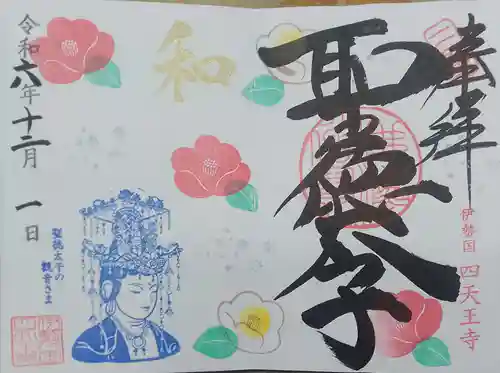 奉拝
聖徳太子
伊勢国 四天王寺
和
令和六年十二月一日
聖徳太子の
観音さま